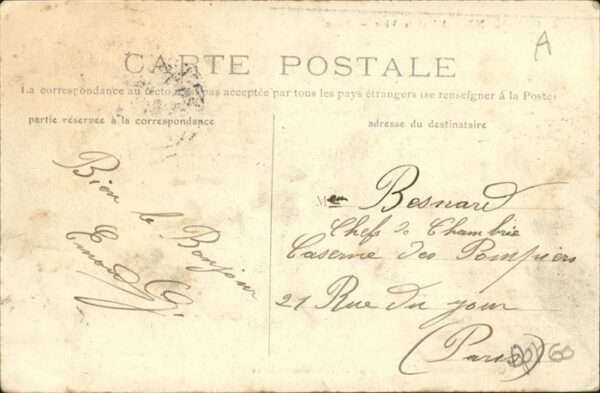 A
CARTE POSTALE
La correspondance au recto n'est pas acceptée par tous les pays étrangers (se renseigner à la Poste
partie réservée à la correspondance
adresse du destinataire
Bien le Bonjour
M Besnard
Chefs de Chambrie
Caserne des Pompiers
21 Rue du jour
(Paris)
60